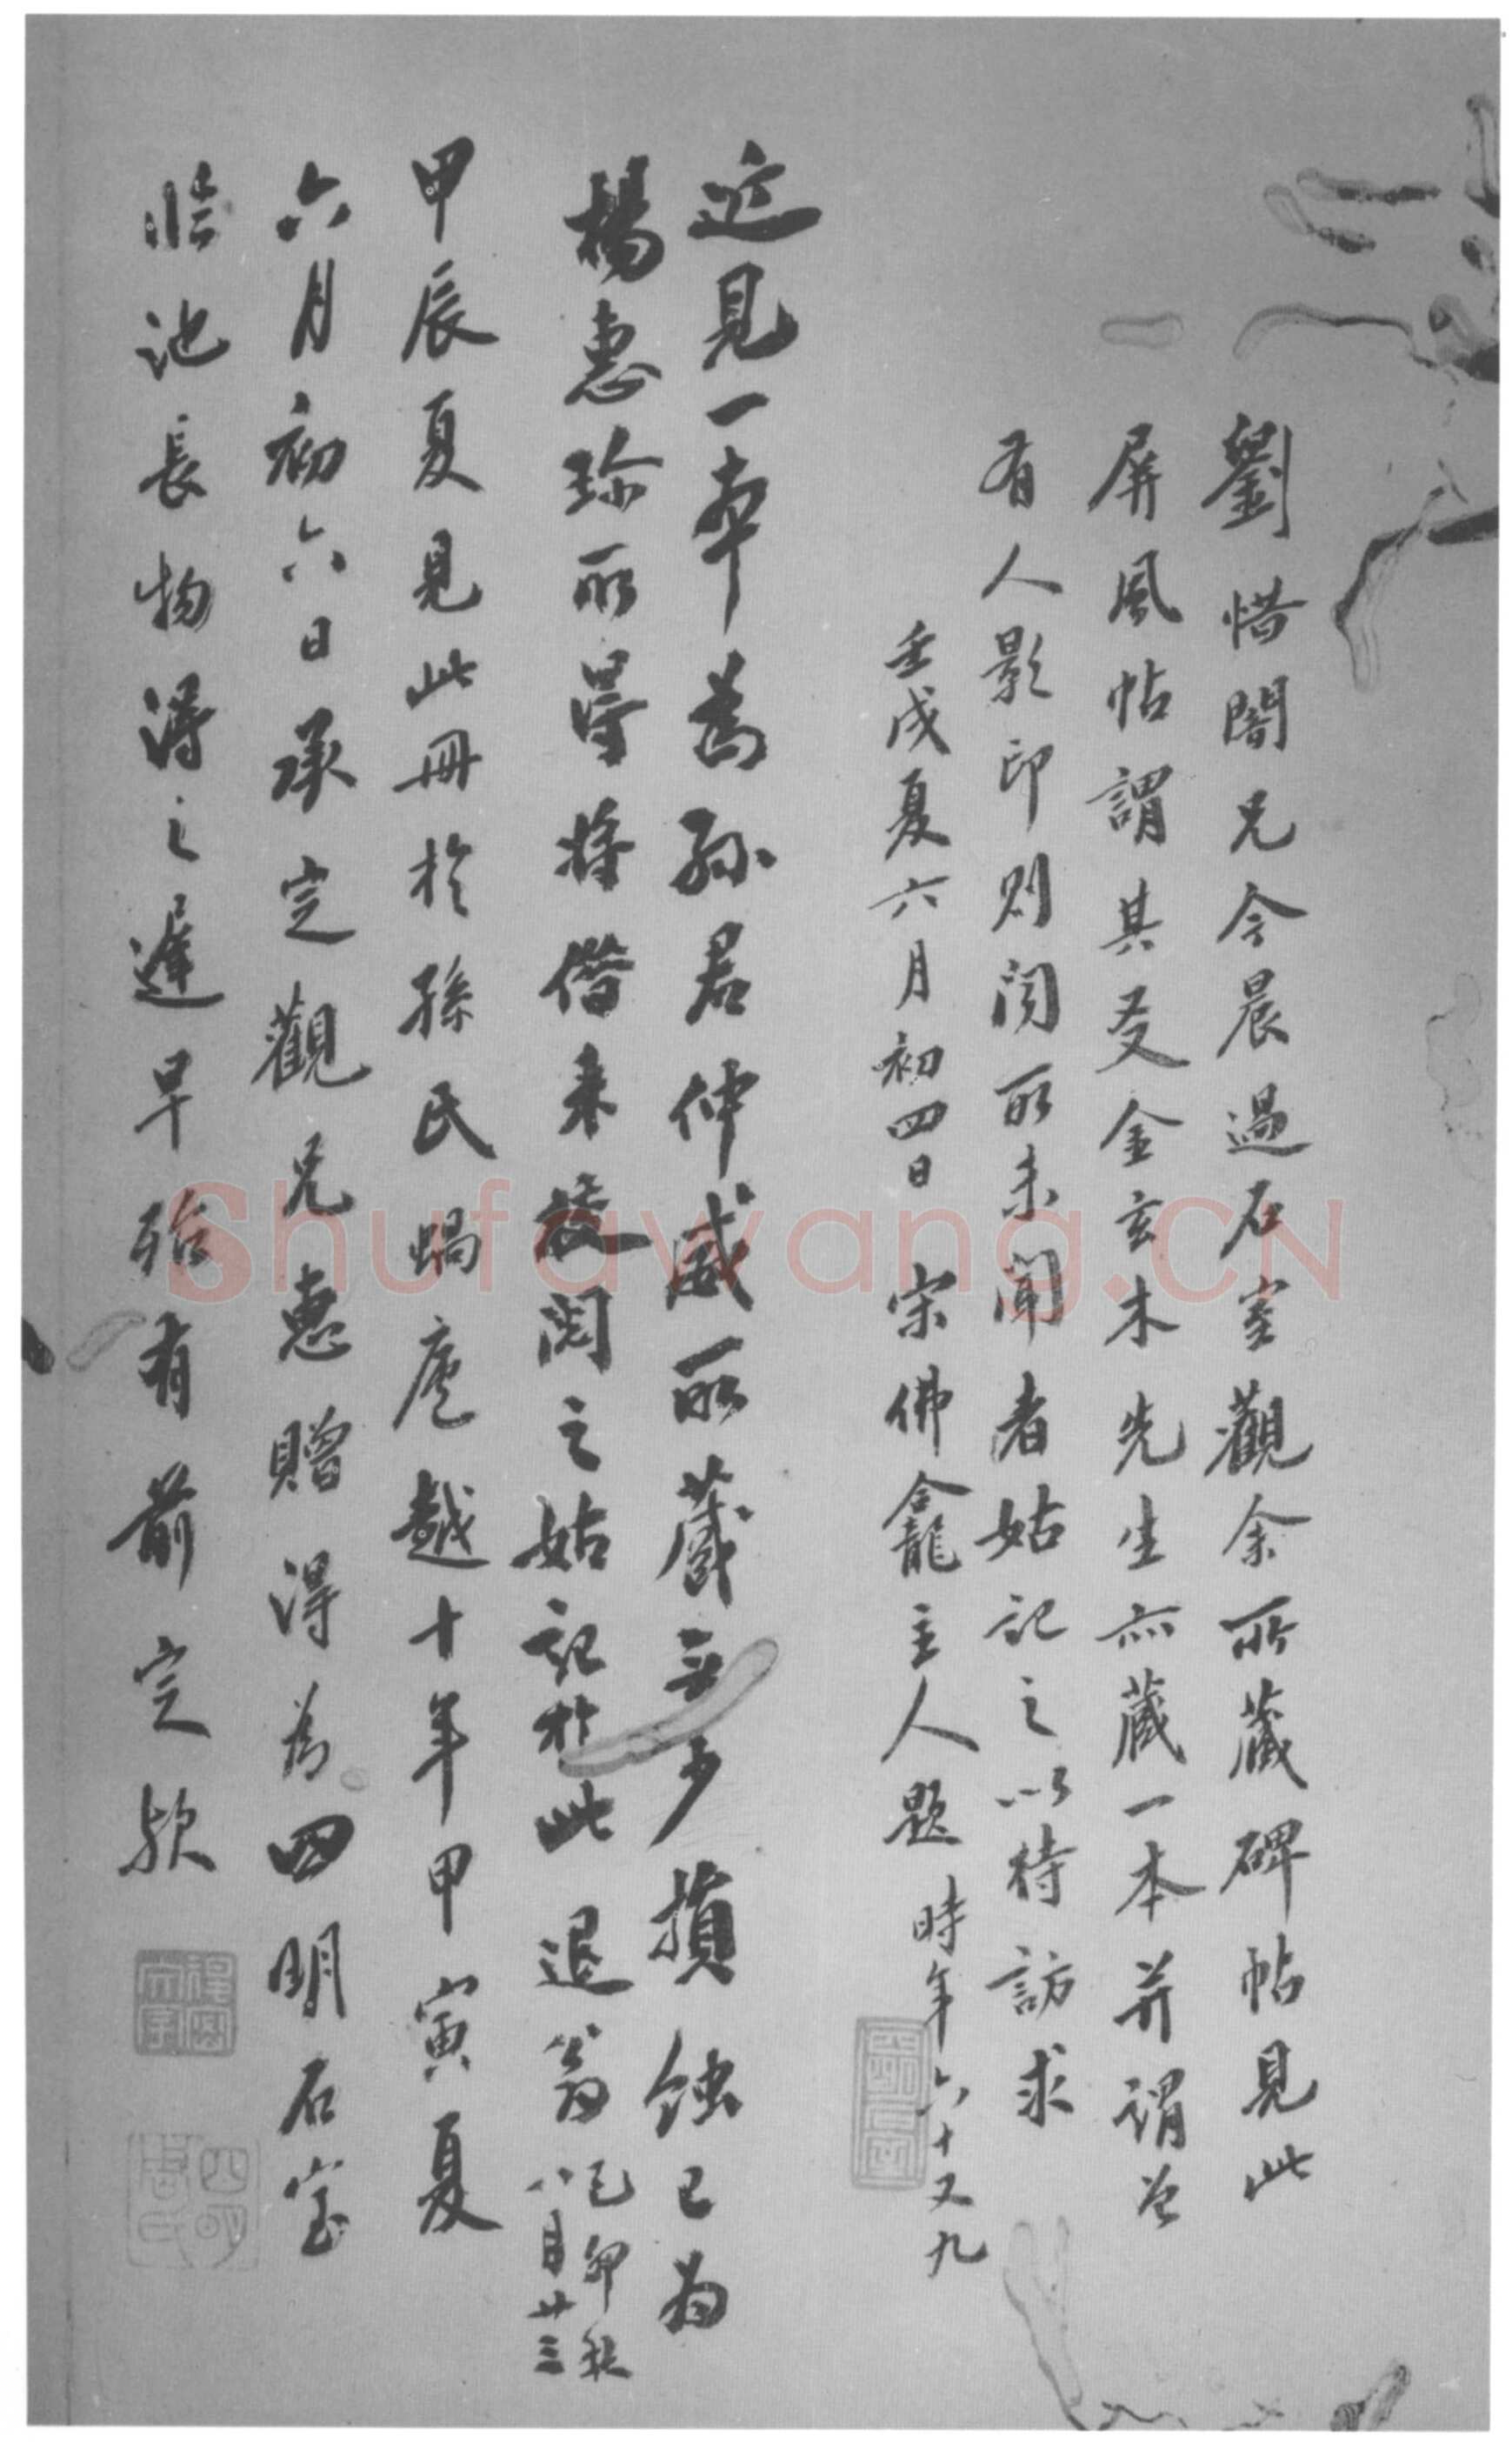 劉惜闇兄今晨過石室觀余所藏碑帖見此
屏風帖謂其友金玄木先生亦藏一本并謂曾
有人影印則閱所未聞者姑記之以待訪求
壬戌夏六月初四日 宋佛龕主人題 時年六十又九
近見一本為孫君仲威所藏無少損蝕已為
楊惠珍所得將借來校閱之姑記於此 退翁 己卯秋
八月廿三
甲辰夏見此冊於孫氏蝸廬越十年甲寅夏
六月初六日承定觀兄惠贈得為四明石室
臨池長物得之遲早殆有前定歟
四明
周氏
Shufawang.CN